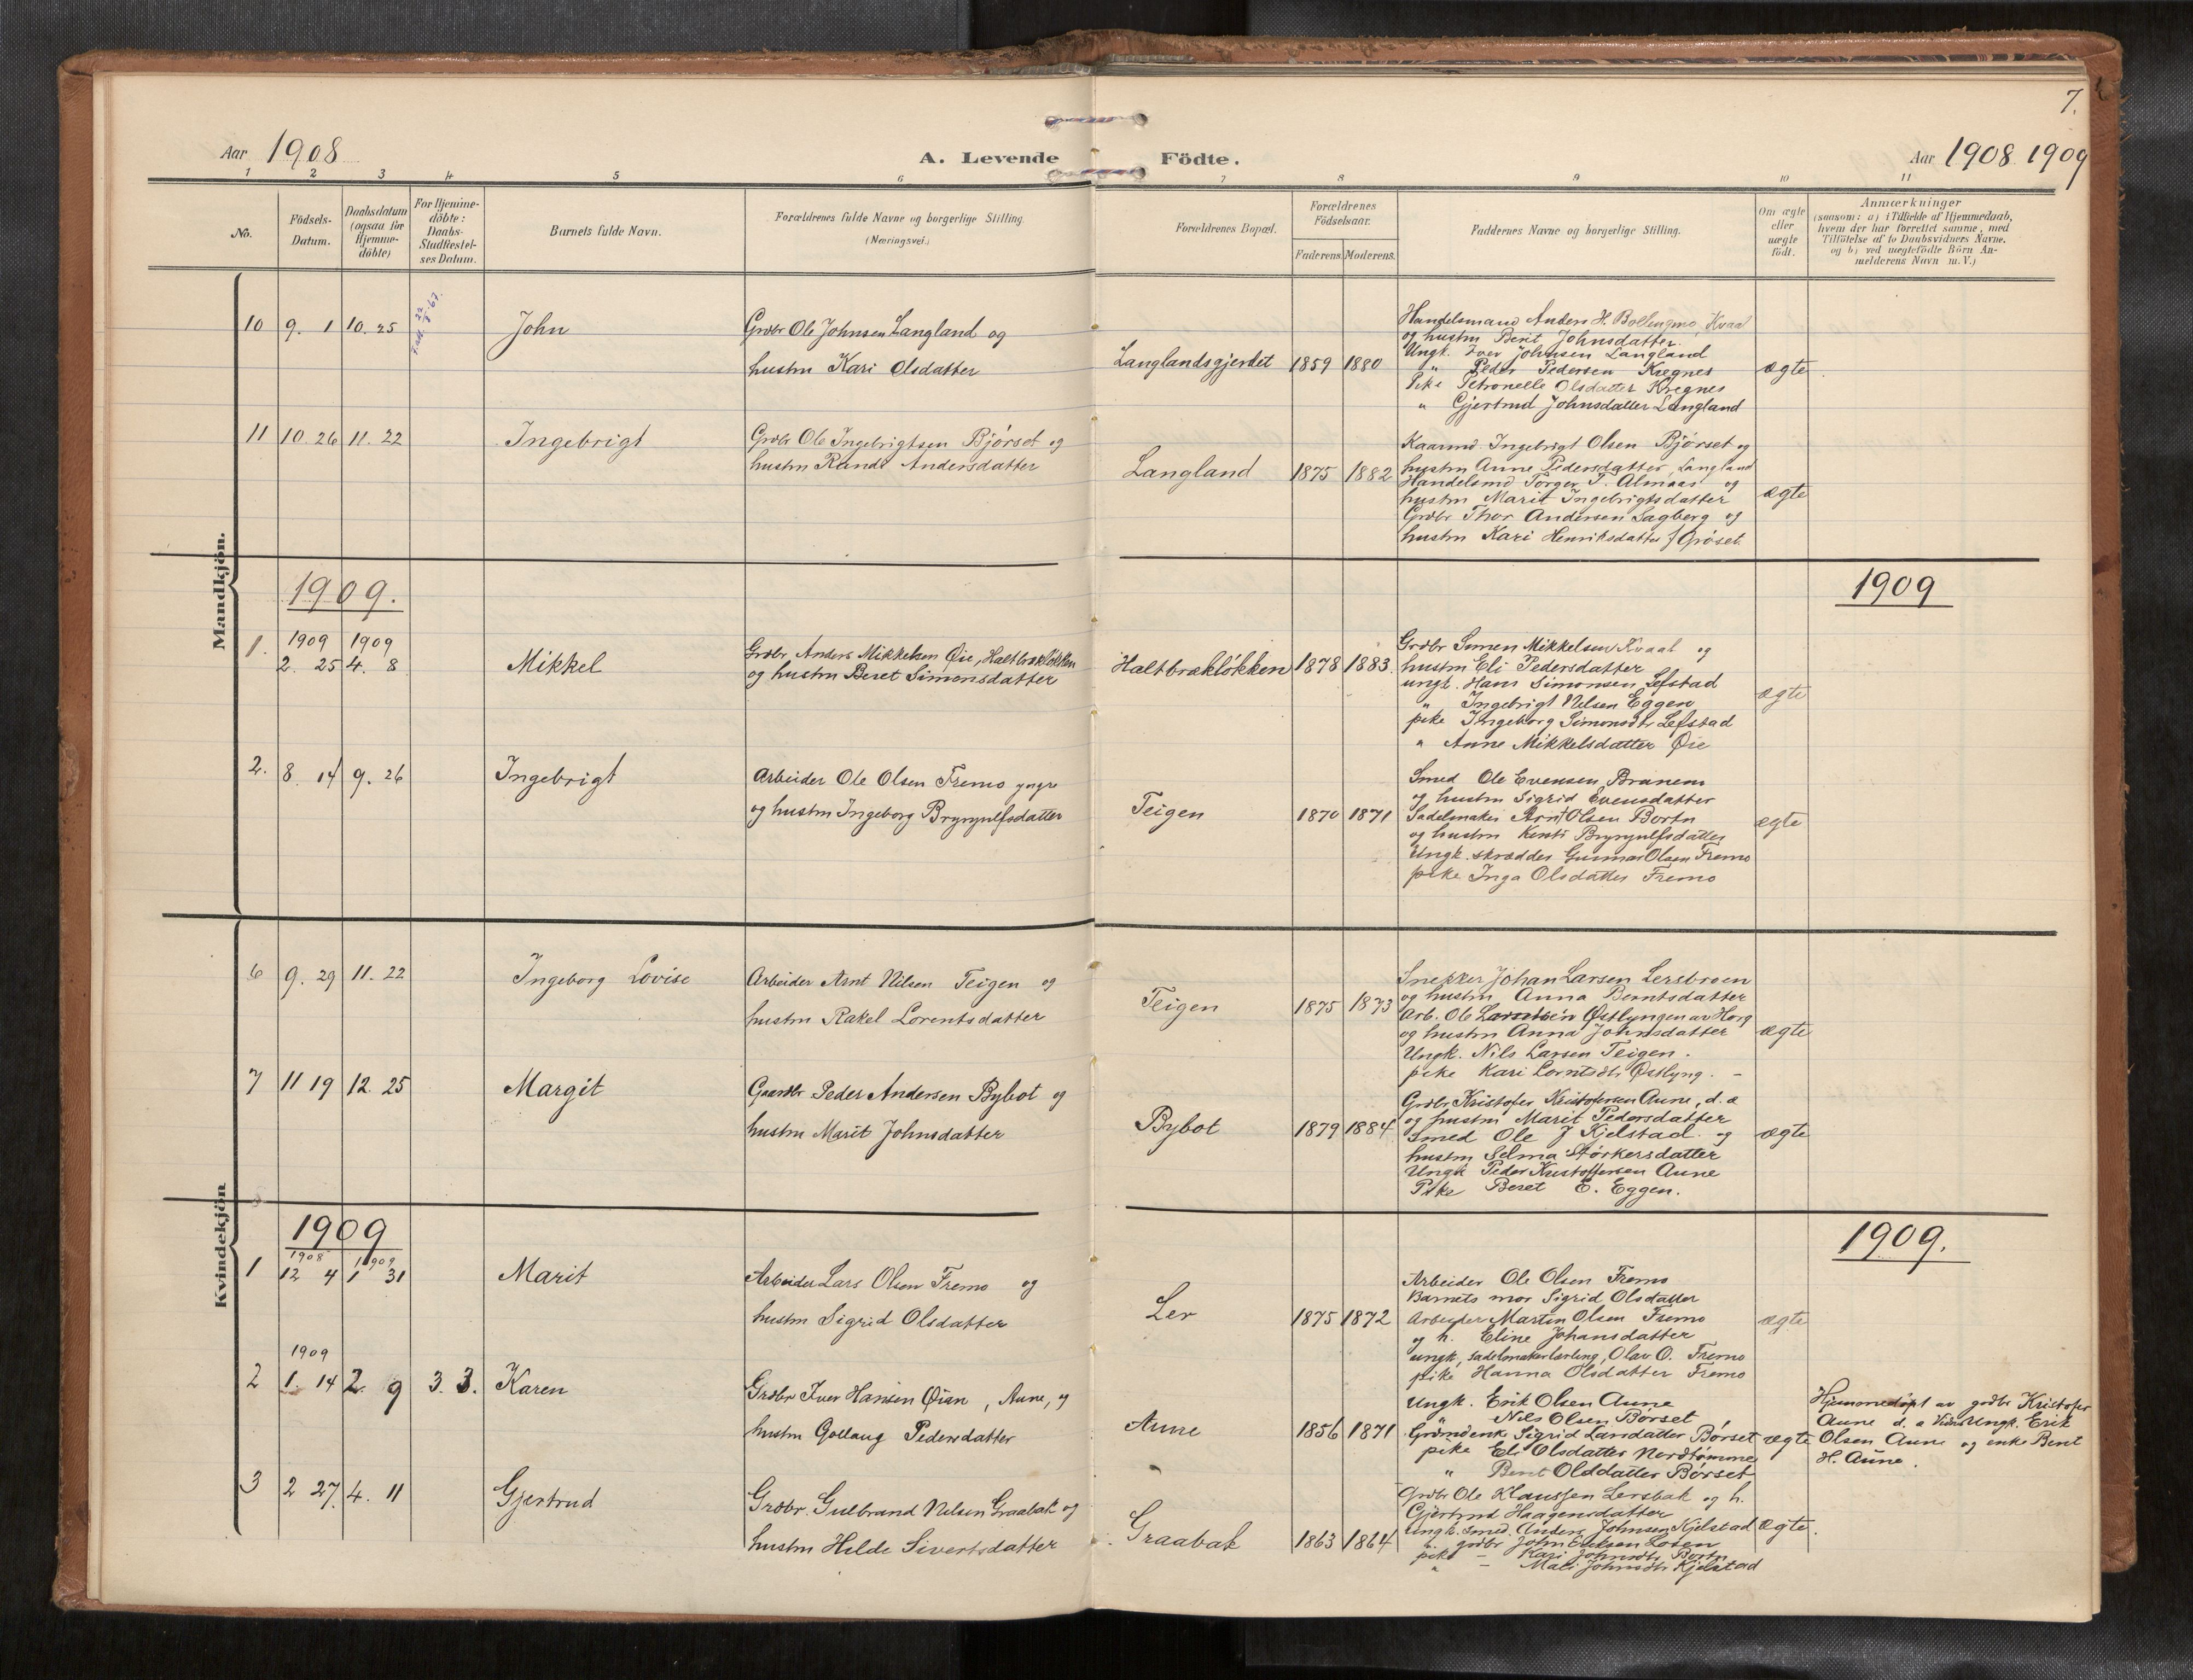 7.
Aar 1908
A. Levende Födte.
Aar 1908 1909
1 2 3 4 5 6 7 8 9 10 11
No.
Födsels-
Datum.
Daabsdatum
(ogsaa for
Hjemme-
döbte)
For Hjemme-
döbte:
Daabs-
Stadfæstel-
ses Datum.
Barnets fulde Navn.
Forældrenes fulde Navne og borgerlige Stilling.
(Næringsvei.)
Forældrenes Bopæl.
Forældrenes
Födselsaar.
Faderens. Moderens.
Faddernes Navne og borgerlige Stilling.
Om ægte
eller
uægte
födt.
Anmærkninger
(saasom: a) i Tilfælde af Hjemmedaab,
hvem der har forrettet samme, med
Tilföielse af to Daabsvidners Navne,
og b) ved uægtefödte Börn An-
melderens Navn m. V.)
Mandkjön.
10 9. 1 10. 25
John
Grdbr Ole Johnsen Langland og
hustru Kari Olsdatter
Langlandsgjerdet 1859 1880
Handelsmand Anders H. Bollingmo Kvaal
og hustru Berit Johnsdatter.
Ungk. Iver Johnsen Langland
" Peder Pedersen Kregnes
Pike Petronelle Olsdatter Kregnes
" Gjertrud Johnsdatter Langland
ægte
11 10. 26 11. 22
Ingebrigt
Grdbr Ole Ingebrigtsen Bjørset og
hustru Randi Andersdatter
Langland 1875 1882
Kaarmd. Ingebrigt Olsen Bjørset og
hustru Anne Pedersdatter, Langland
Handelsmd Torger T. Almaas og
hustru Marit Ingebrigtsdatter
Grdbr Thor Andersen Sagberg og
hustru Kari Henriksdatter f Grøset.
ægte
1909.
1909
1. 1909 1909
2. 25 4. 8
Mikkel
Grdbr Anders Mikkelsen Øie, Haltbrækløkken
og hustru Beret Simonsdatter
Haltbrækløkken 1878 1883.
Grdbr Simen Mikkelsen Kvaal og
hustru Eli Pedersdatter
ungk. Hans Simonsen Lefstad
" Ingebrigt Nilsen Eggen
pike Ingeborg Simonsdtr Lefstad
" Anne Mikkelsdatter Øie
ægte
2. 8. 14 9. 26
Ingebrigt
Arbeider Ole Olsen Fremo yngre
og hustru Ingeborg Brynjulfsdatter
Teigen 1870 1871
Smed Ole Evensen Branem
og hustru Sigrid Evensdatter
Sadelmaker Arnt Olsen Bortn
og hustru Brynjulfsdatter
Ungk. skrædder Gunnar Olsen Fremo
pike Inga Olsdatter Fremo
ægte
Kvindekjön
6 9. 29 11. 22
Ingeborg Lovise
Arbeider Arnt Nilsen Teigen og
hustru Rakel Lorentsdatter
Teigen 1875 1873
Snekker Johan Larsen Lersbroen
og hustru Anna Berntsdatter
Arb. Ole Østlyngen av Horg
og hustru Anna Johnsdatter
Ungk. Nils Larsen Teigen.
pike Kari Lorntsdtr Østlyng. –
ægte
7 11 19 12. 25
Margit
Gaardbr Peder Andersen Bybot og
hustru Marit Johnsdatter
Bybot 1879 1884
Grdbr Kristofer Kristofersen Aune, d. æ
og hustru Marit Pedersdatter
Smed Ole J Kjelstad. og
hustru Selma Størkersdatter
Ungk Peder Kristoffersen Aune
Pike Beret E. Eggen.
ægte
1909
1909.
1 1908 1909
12 4 1 31
Marit
Arbeider Lars Olsen Fremo og
hustru Sigrid Olsdatter
Ler 1875 1872
Arbeider Ole Olsen Fremo
Barnets mor Sigrid Olsdatter
Arbeider Martin Olsen Fremo
og h. Eline Johansdatter
ungk, sadelmakerlærling, Olav O. Fremo
pike Hanna Olsdatter Fremo
ægte
1909
2 1. 14 2. 9 3. 3.
Karen
Grdbr Iver Hansen Øian, Aune, og
hustru Gollaug Pedersdatter
Aune 1856 1871
Ungk. Erik Olsen Aune
" Nils Olsen Børset
Grdmdenk Sigrid Larsdatter Børset
pike Eli Olsdatter Nordtømme
" Beret Olsdatter Børset
ægte
Hjemmedøpt av grdbr Kristofer
Aune d. æ Vidn: Ungk. Erik
Olsen Aune og enke Beret
H. Aune.
3 2 27. 4. 11
Gjertrud
Grdbr. Gulbrand Nilsen Graabak og
hustru Hilde Sivertsdatter
Graabak 1863 1864
Grdbr Ole Klaussen Lersbak og h.
Gjertrud Haagensdatter
Ungk. smed. Anders Johnsen Kjelstad
" grdbr John Eriksen Losen
pike – Kari Johnsdtr Bortn
" – Mali Johnsdtr Kjelstad
ægte.